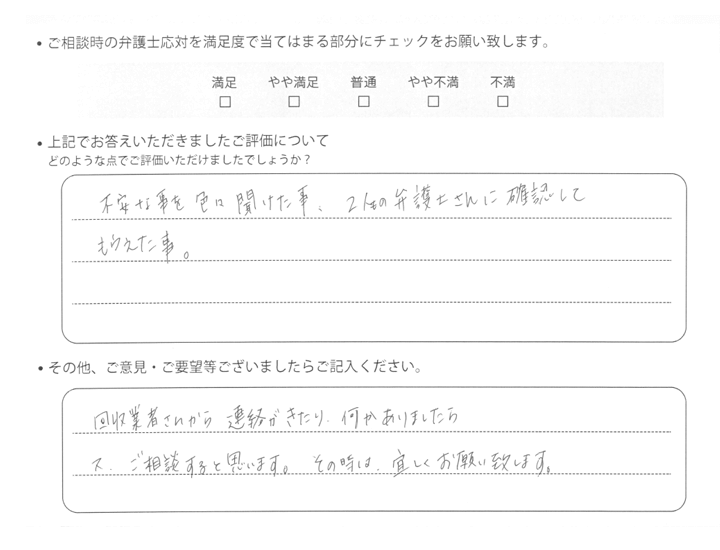 • ご相談時の弁護士応対を満足度で当てはまる部分にチェックをお願い致します。
満足 やや満足 普通 やや不満 不満
□ □ □ □ □
• 上記でお答えいただきましたご評価について
どのような点でご評価いただけましたでしょうか？
不安な事を色々聞けた事、2人の弁護士さんに確認して
もらえた事。
• その他、ご意見・ご要望等ございましたらご記入ください。
回収業者さんから連絡がきたり、何かありましたら
又、ご相談すると思います。その時は、宜しくお願い致します。